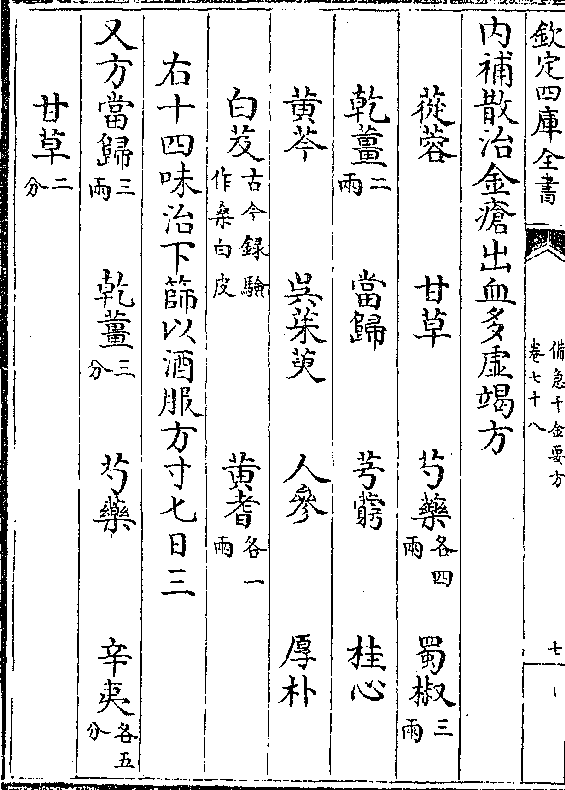 欽定四庫全書
備急千金要方
卷七十八
七
内補散治金瘡出血多虛竭方
蓯蓉 甘草 芍藥各四兩 蜀椒三兩
乾薑二兩 當歸 芎藭 桂心
黄芩 吳茱萸 人參 厚朴
白芨古今録驗作桑白皮 黄耆各一兩
右十四味治下篩以酒服方寸七日三
又方當歸三兩 乾薑三分 芍藥 辛夷各五分
甘草二分